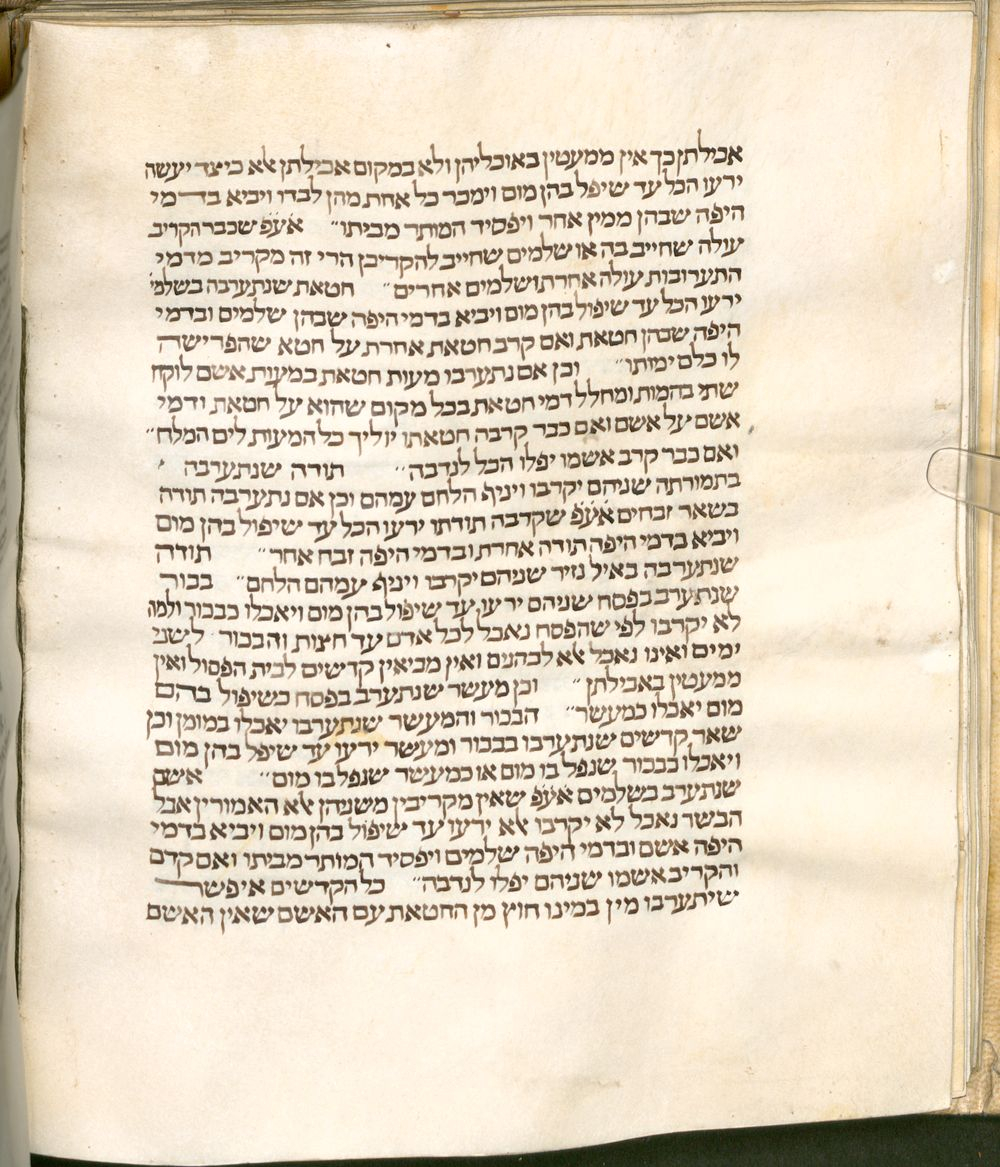 אכילתן כך אין ממעטין באוכליהן ולא במקום אכילתן אלא כיצד יעשה
ירעו הכל עד שיפל בהן מום וימכר כל אחת מהן לבדו ויביא בדמי
היפה שבהן ממין אחר ויפסיד המותר מביתו״ אעפ שכבר הקריב
עולה שחייב בה או שלמים שחייב להקריבן הרי זה מקריב מדמי
התערובות עולה אחרת ושלמים אחרים״ חטאת שנתערבה בשלמי׳
ירעו הכל עד שיפול בהן מום ויביא בדמי היפה שבהן שלמים ובדמי
היפה שבהן חטאת ואם קרב חטאת אחרת על חטא שהפרישה
לו כלם ימותו״ וכן אם נתערבו מעות חטאת במעות אשם לוקח
שתי בהמות ומחלל דמי חטאת בכל מקום שהוא על חטאת ודמי
אשם על אשם ואם כבר קרבה חטאתו יוליך כל המעות לים המלח״
ואם כבר קרב אשמו יפלו הכל לנדבה״ תודה שנתערבה
בתמורתה שניהם יקרבו ויניף הלחם עמהם וכן אם נתערבה תודה
בשאר זבחים אעפ שקרבה תודתו ירעו הכל עד שיפול בהן מום
ויביא בדמי היפה תודה אחרת ובדמי היפה זבח אחר״ תודה
שנתערבה באיל נזיר שניהם יקרבו ויניף עמהם הלחם״ בכור
שנתערב בפסח שניהם ירעו עד שיפול בהן מום ויאכלו כבכור ולמה
לא יקרבו לפי שהפסח נאכל לכל אדם עד חצות והבכור לשני
ימים ואינו נאכל אלא לכהנים ואין מביאין קדשים לבית הפסול ואין
ממעטין באכילתן״ וכן מעשר שנתערב בפסח כשיפול בהם
מום יאכלו כמעשר״ הבכור והמעשר שנתערבו יאכלו במומן וכן
שאר קדשים שנתערבו בבכור ומעשר ירעו עד שיפל בהן מום
ויאכלו כבכור שנפל בו מום או כמעשר שנפל בו מום״ אשם
שנתערב בשלמים אעפ שאין מקריבין משניהן אלא האמורין אבל
הבשר נאכל לא יקרבו אלא ירעו עד שיפול בהן מום ויביא בדמי
היפה אשם ובדמי היפה שלמים ויפסיד המותר מביתו ואם קדם
והקריב אשמו שניהם יפלו לנדבה״ כל הקדשים איפשר
שיתערבו מין במינו חוץ מן החטאת עם האשם שאין האשם